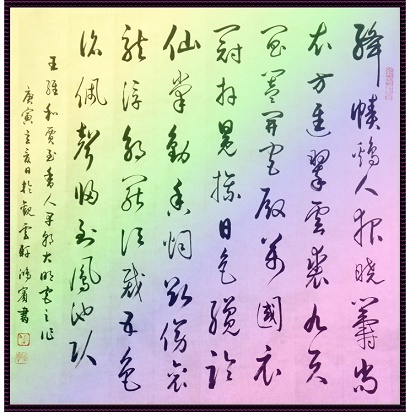 絳幘鷄人报曉籌尚
衣方進翠雲裘九天
閶闔開宮殿萬國衣
冠拜冕旒日色纔臨
仙掌動香烟欲傍袞
龍浮朝罷須裁五色
詔佩聲归到鳳池头
王維和賈至舍人早朝大明宮之作
庚寅立夏日於觀雲軒鴻賓書